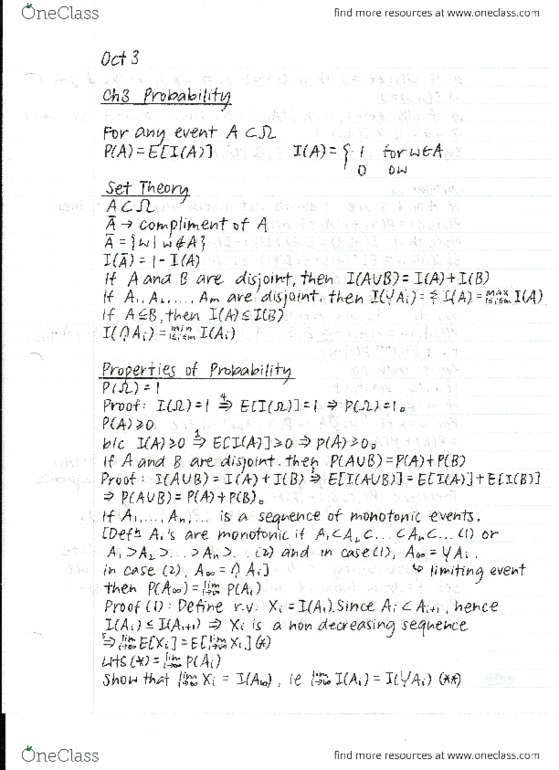 OneClass
find more resources at www.oneclass.com
Oct 3
Ch3 Probability
For any event A⊂Ω
P(A)=E[I(A)] I(A)={ 1 for w∈A
0 ow
Set Theory
A⊂Ω
Ā → compliment of A
Ā={w| w∉A}
I(Ā)=1-I(A)
If A and B are disjoint, then I(A∪B)=I(A)+I(B)
If A₁, A₂,..., Am are disjoint, then I(∪Ai)=Σ I(A)= max 1≤i≤m I(A)
If A⊆B, then I(A)≤I(B)
I(∩Ai)= min 1≤i≤m I(Ai)
Properties of Probability
P(Ω)=1
Proof: I(Ω)=1 ⇒ E[I(Ω)]=1 ⇒ P(Ω)=1.
P(A)≥0
b/c I(A)≥0 ⇒ E[I(A)]≥0 ⇒ P(A)≥0.
If A and B are disjoint, then P(A∪B)=P(A)+P(B)
Proof: I(A∪B)=I(A)+I(B) ⇒ E[I(A∪B)]=E[I(A)]+E[I(B)]
⇒ P(A∪B)=P(A)+P(B).
If A₁,..., An,... is a sequence of monotonic events.
[Defn Ai's are monotonic if A₁⊂A₂⊂...⊂An⊂... (1) or
A₁⊃A₂⊃...⊃An⊃... (2) and in case (1), A∞=∪Ai.
in case (2), A∞=∩Ai] ↳ limiting event
then P(A∞)=lim i→∞ P(Ai)
Proof (1): Define r.v. Xi=I(Ai). Since Ai⊂Ai+1, hence
I(Ai)≤I(Ai+1) ⇒ Xi is a non decreasing sequence
⇒ lim i→∞ E[Xi]=E[lim i→∞ Xi] (*)
LHS(*)=lim i→∞ P(Ai)
Show that lim i→∞ Xi = I(A∞), ie lim i→∞ I(Ai)=I(∪Ai) (**)
OneClass
find more resources at www.oneclass.com